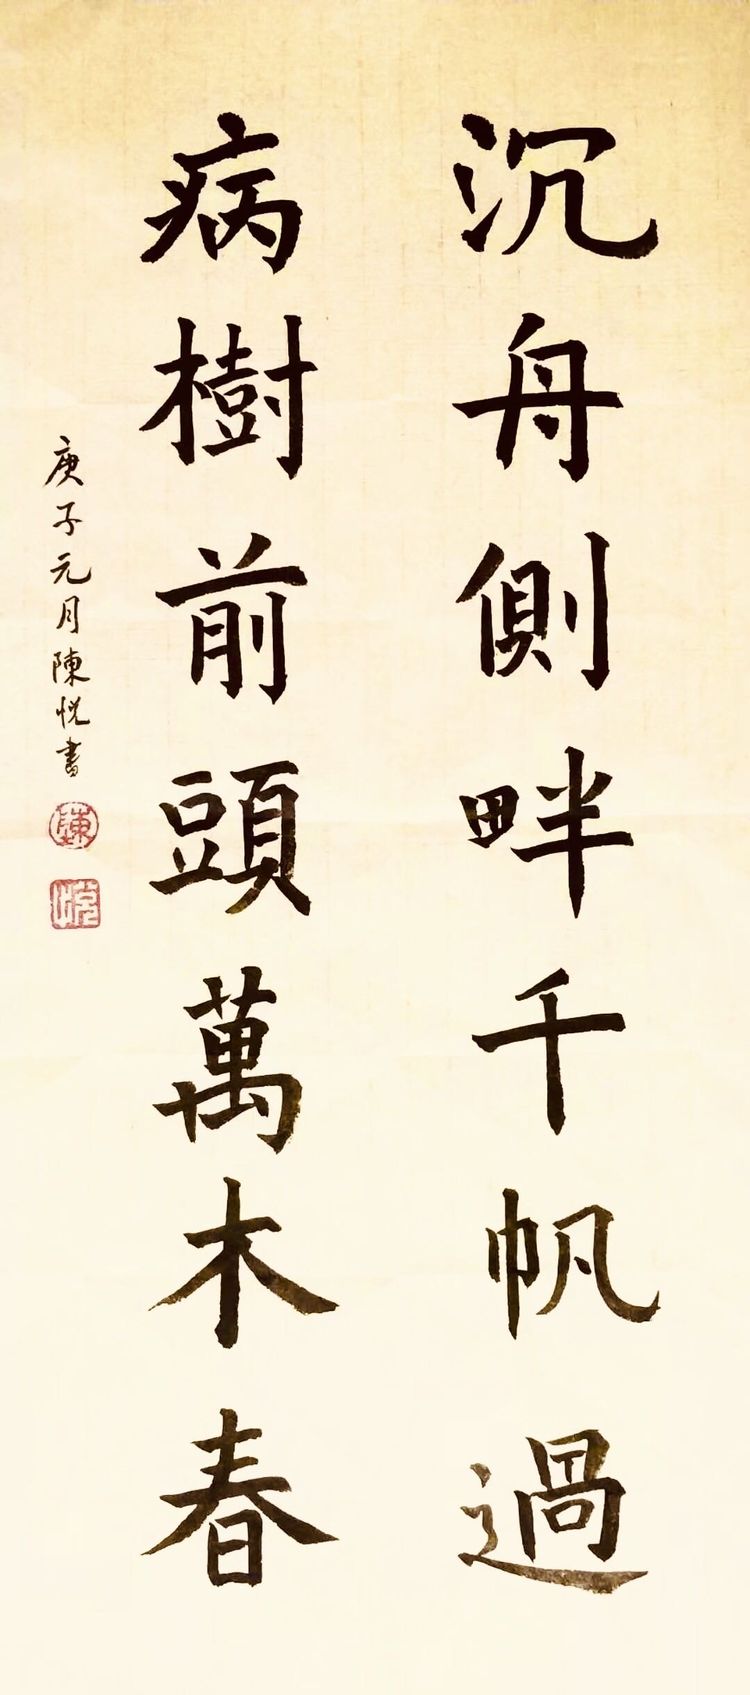 沉舟側畔千帆過
病樹前頭萬木春
庚子元月陳悦書
陳